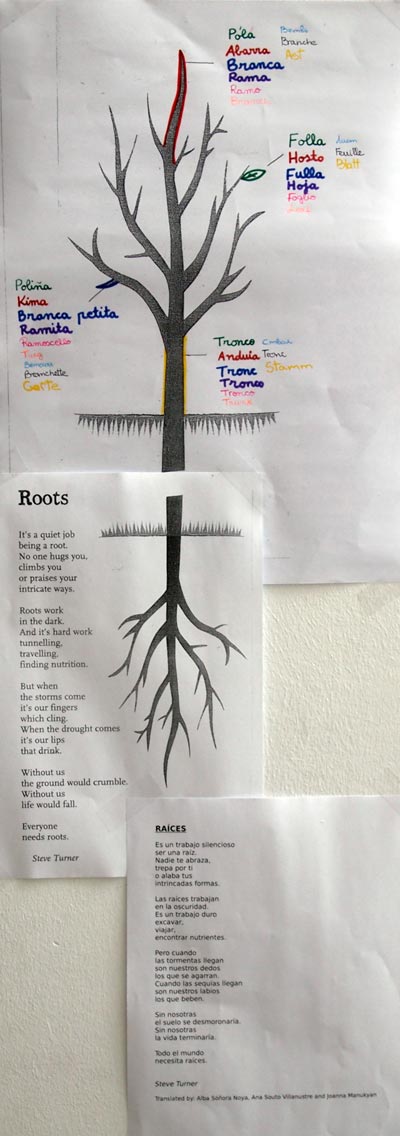 Póla
Branche
Abarra
Ast
Branca
Rama
Ramo
Folla
Hosto
Feuille
Fulla
Blatt
Hoja
Foglio
Poliña
Kima
Branca petita
Ramita
Ramoscello
Twig
Branchette
Gerte
Tronco
Anduia
Tronc
Tronc
Stamm
Tronco
Tronco
Roots
It's a quiet job
being a root.
No one hugs you,
climbs you
or praises your
intricate ways.
Roots work
in the dark.
And it's hard work
tunnelling,
travelling,
finding nutrition.
But when
the storms come
it's our fingers
which cling.
When the drought comes
it's our lips
that drink.
Without us
the ground would crumble.
Without us
life would fall.
Everyone
needs roots.
Steve Turner
RAÍCES
Es un trabajo silencioso
ser una raíz.
Nadie te abraza,
trepa por ti
o alaba tus
intrincadas formas.
Las raíces trabajan
en la oscuridad.
Es un trabajo duro
excavar,
viajar,
encontrar nutrientes.
Pero cuando
las tormentas llegan
son nuestros dedos
los que se agarran.
Cuando las sequías llegan
son nuestros labios
los que beben.
Sin nosotras
el suelo se desmoronaría.
Sin nosotras
la vida terminaría.
Todo el mundo
necesita raíces.
Steve Turner
Translated by: Alba Soñora Noya, Ana Souto Villanustre and Joanna Manukyan